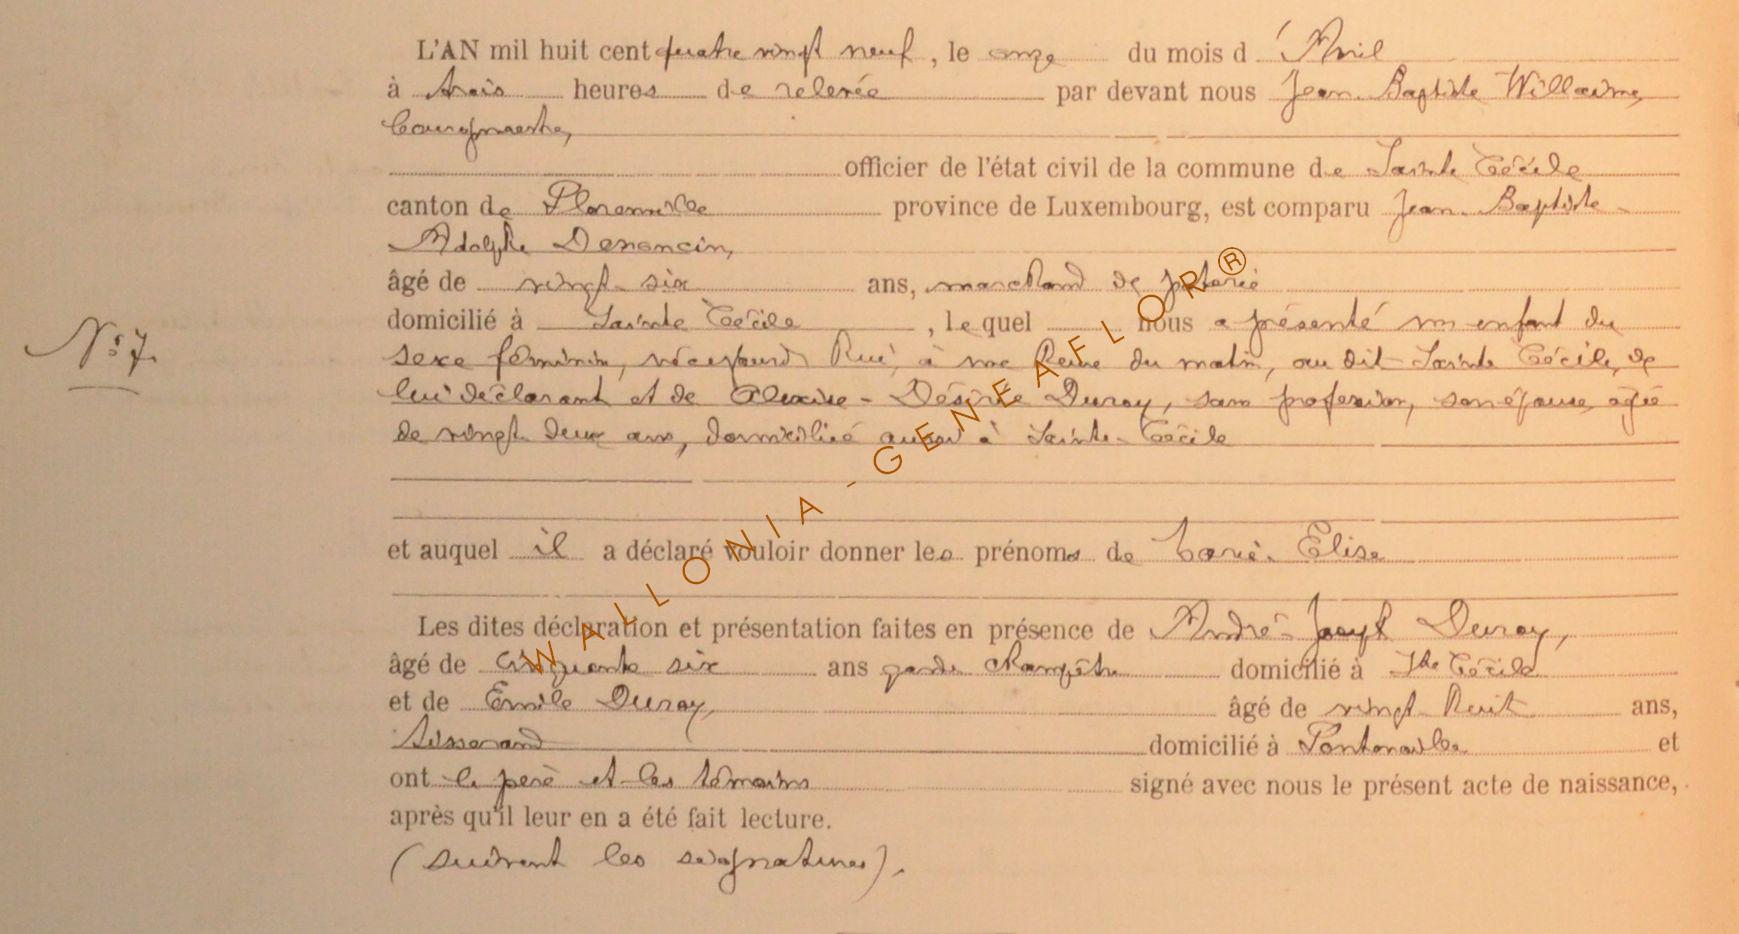 L'AN mil huit cent quatre vingt neuf, le onze du mois d'Avril
à trois heures de relevée par devant nous Jean-Baptiste Willaime,
bourgmestre,
officier de l'état civil de la commune de Sainte Cécile
canton de Florenville province de Luxembourg, est comparu Jean-Baptiste-
Adolphe Denoncin,
âgé de vingt-six ans, marchand de poterie
domicilié à Sainte Cécile, lequel nous a présenté un enfant du
sexe féminin, né aujourd'hui, à une heure du matin, au dit Sainte Cécile, de
lui déclarant et de Alexise-Désirée Duroy, sans profession, son épouse, agée
de vingt deux ans, domiciliée aussi à Sainte-Cécile
N° 7.
et auquel il a déclaré vouloir donner les prénoms de Élise
Les dites déclaration et présentation faites en présence de André-Duroy,
âgé de cinquante six ans garde champêtre domicilié à Ste Cécile
et de Emile Duroy, âgé de vingt huit ans,
tisserand domicilié à Fontenoille et
ont le père et les témoins signé avec nous le présent acte de naissance,
après qu'il leur en a été fait lecture.
(suivent les signatures).
WALLONIA-GENEAFLOR®